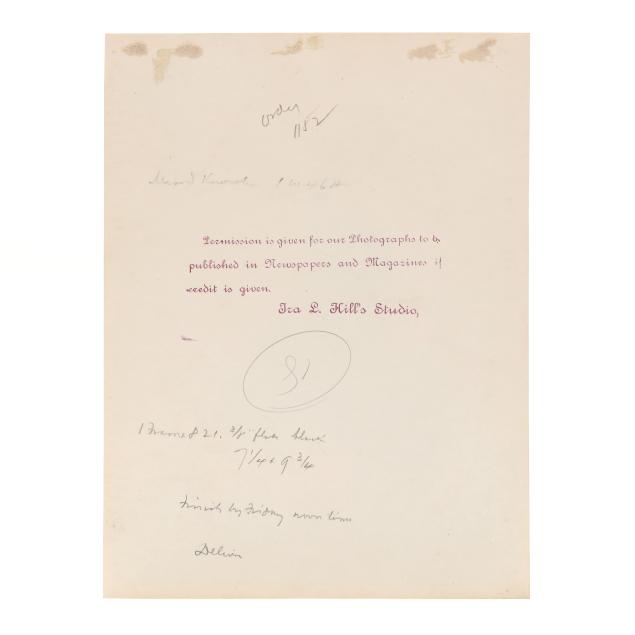 order
1182
Permission is given for our Photographs to b
published in Newspapers and Magazines if
credit is given.
Ira L. Hill's Studio,
1 Frame 821. 3/8" flat black
7 1/4 x 9 3/4
Finish by Friday noon time
Deliver